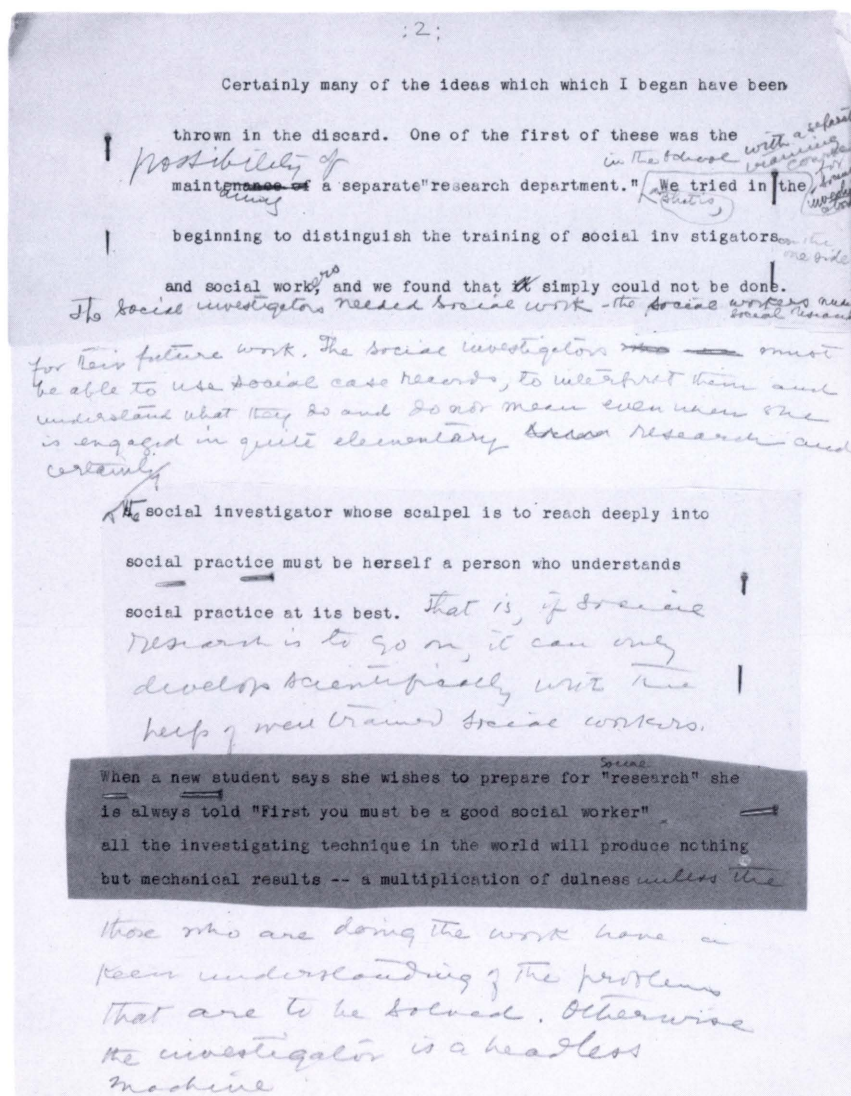 :2:
Certainly many of the ideas which which I began have been
thrown in the discard. One of the first of these was the
possibility of
in the School with a separate training course for social investigators
maintenance of a separate "research department." We tried in the
that is,
beginning to distinguish the training of social inv stigators on the one side
and social workers, and we found that it simply could not be done.
The social investigators needed social work - the social workers need social research
for their future work. The social investigators must
be able to use social case records, to interpret them and
understand what they do and do not mean even when she
is engaged in quite elementary research and
certainly
the social investigator whose scalpel is to reach deeply into
social practice must be herself a person who understands
social practice at its best. That is, if social
research is to go on, it can only
develop scientifically with the
help of well trained social workers.
Social
When a new student says she wishes to prepare for "research" she
is always told "First you must be a good social worker"
all the investigating technique in the world will produce nothing
but mechanical results -- a multiplication of dulness unless the
those who are doing the work have a
keen understanding of the problems
that are to be solved. Otherwise
the investigator is a headless
machine